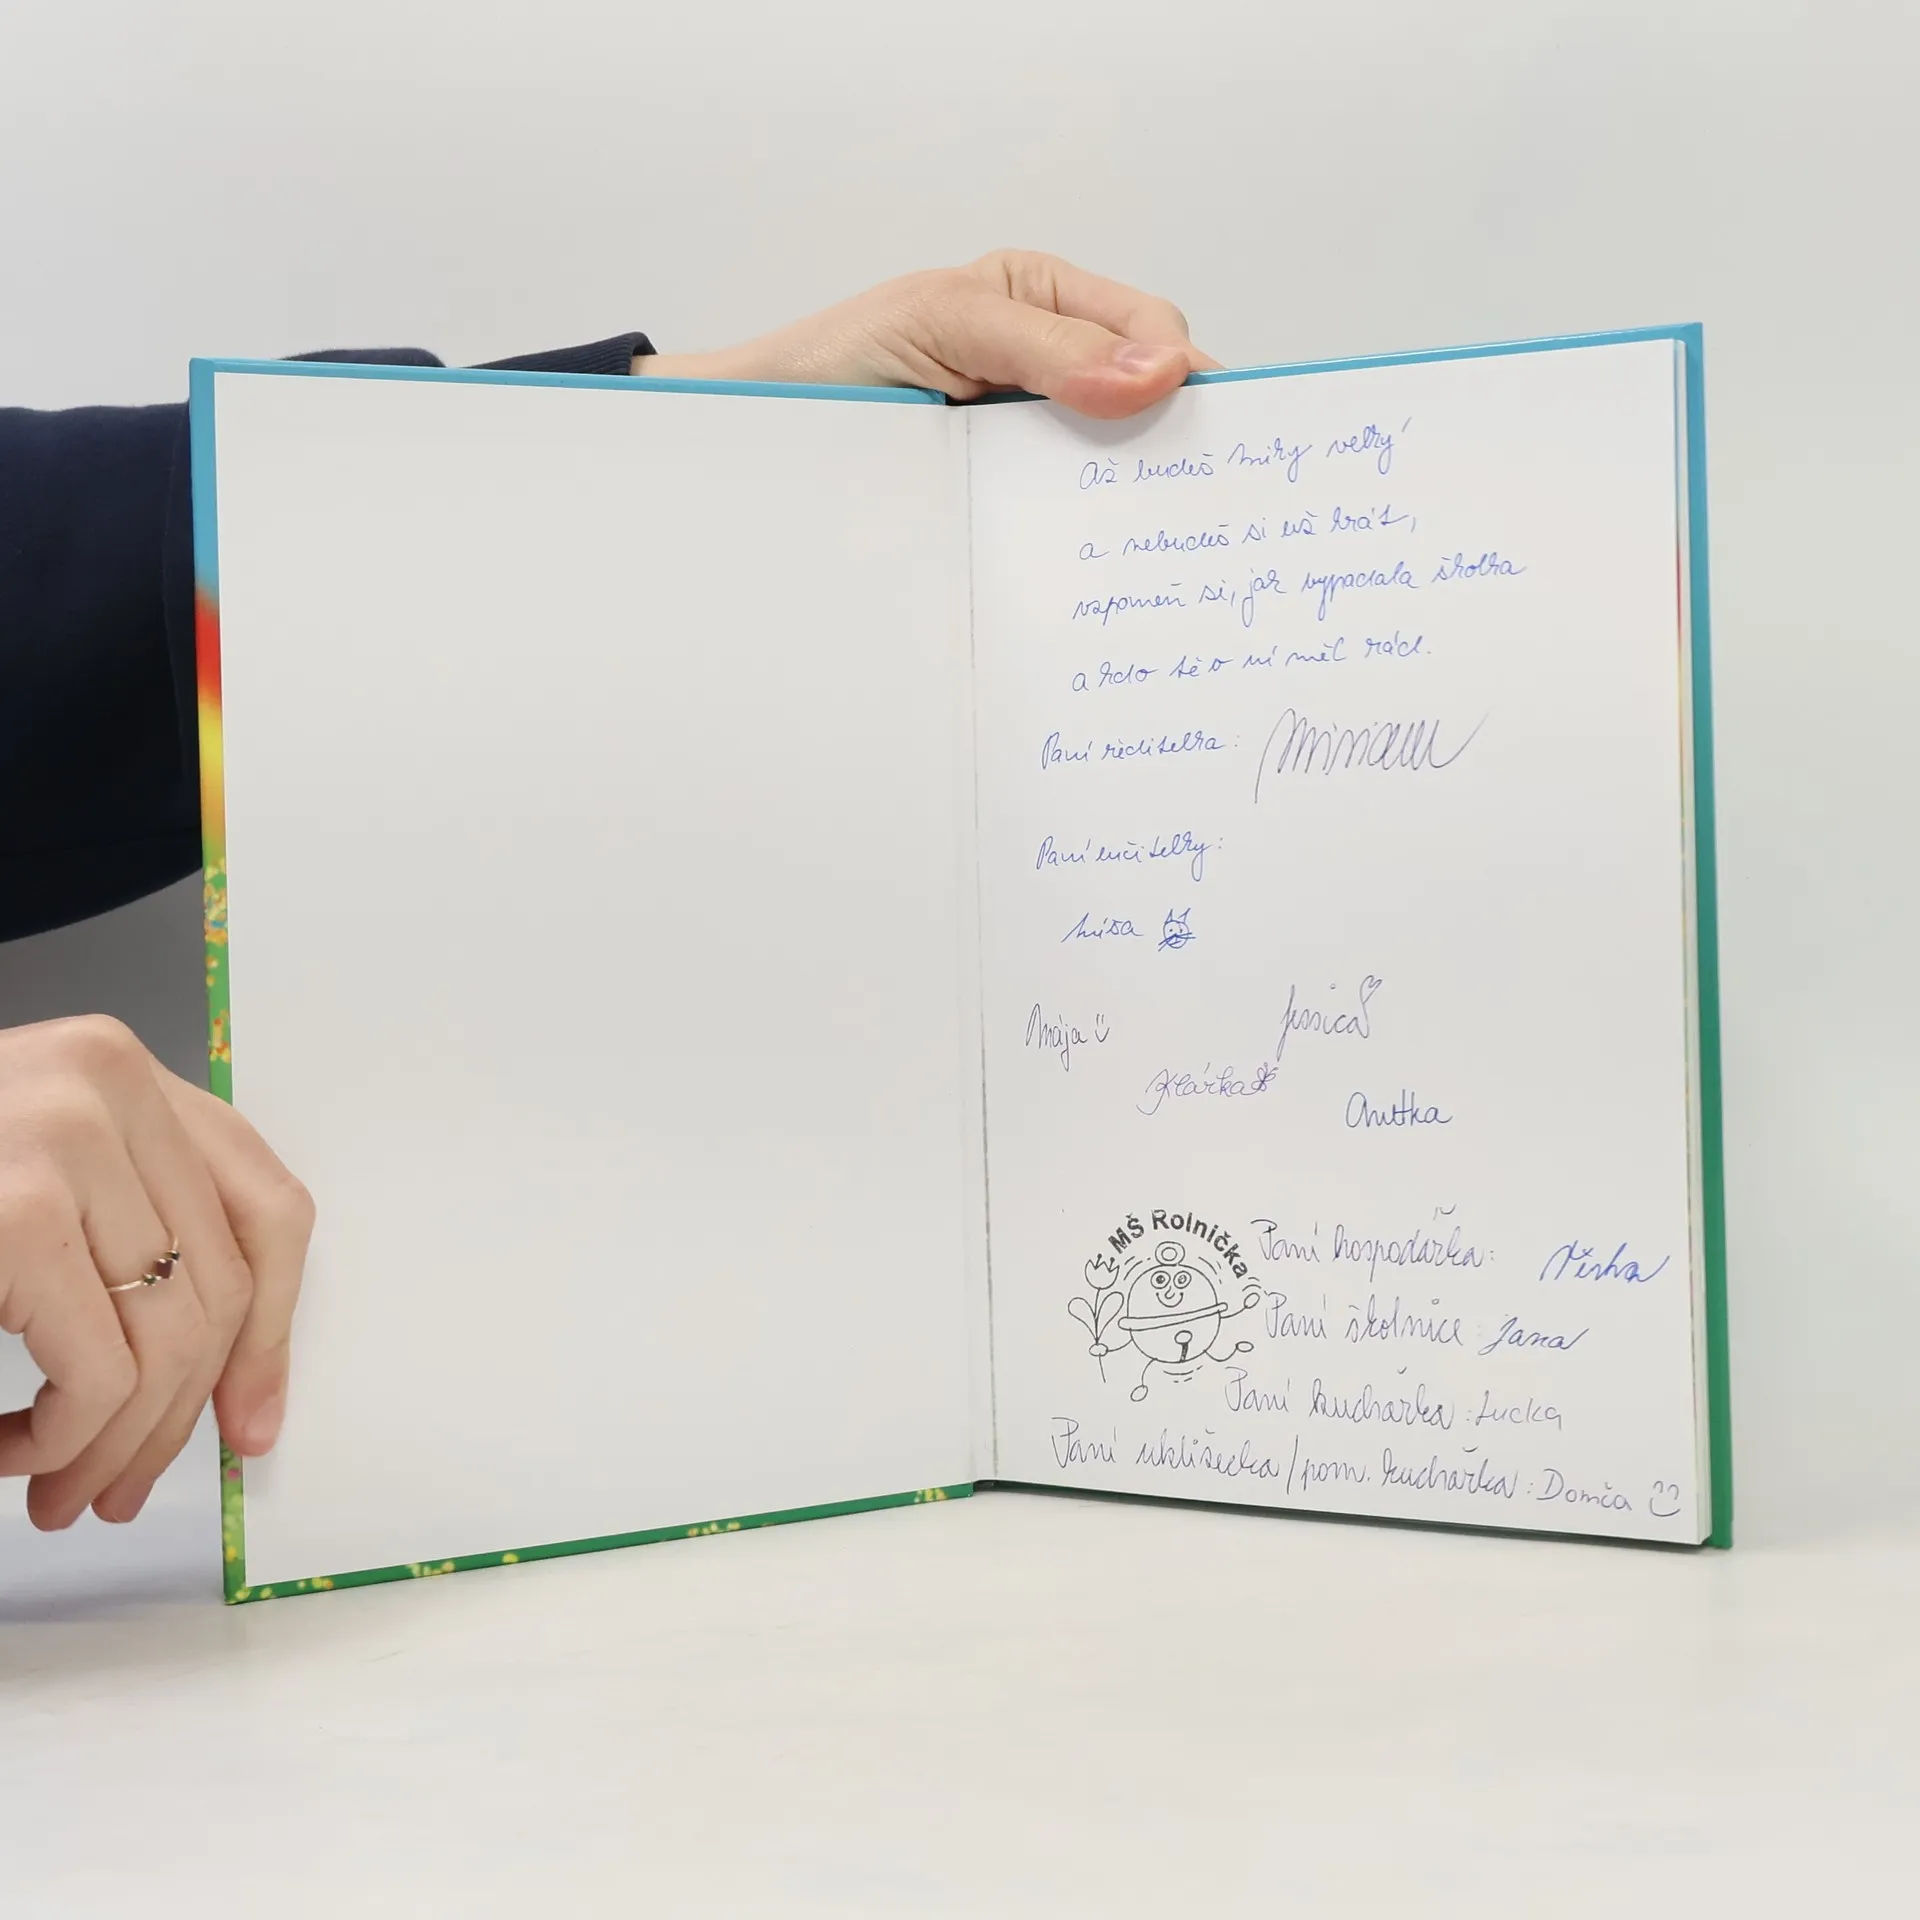 Až budeš Miky velký
a nebudeš si už hrát,
vzpomeň si, jak vypadala školka
a kdo tě v ní měl rád.
Paní ředitelka: Miriam
Paní učitelky:
Míša
Jessica
Mája
Klárka
Anetka
MŠ Rolnička
Paní hospodářka:
Paní školnice Jana
Paní kuchařka: Lucka
Paní uklízečka / pom. kuchařka: Domča